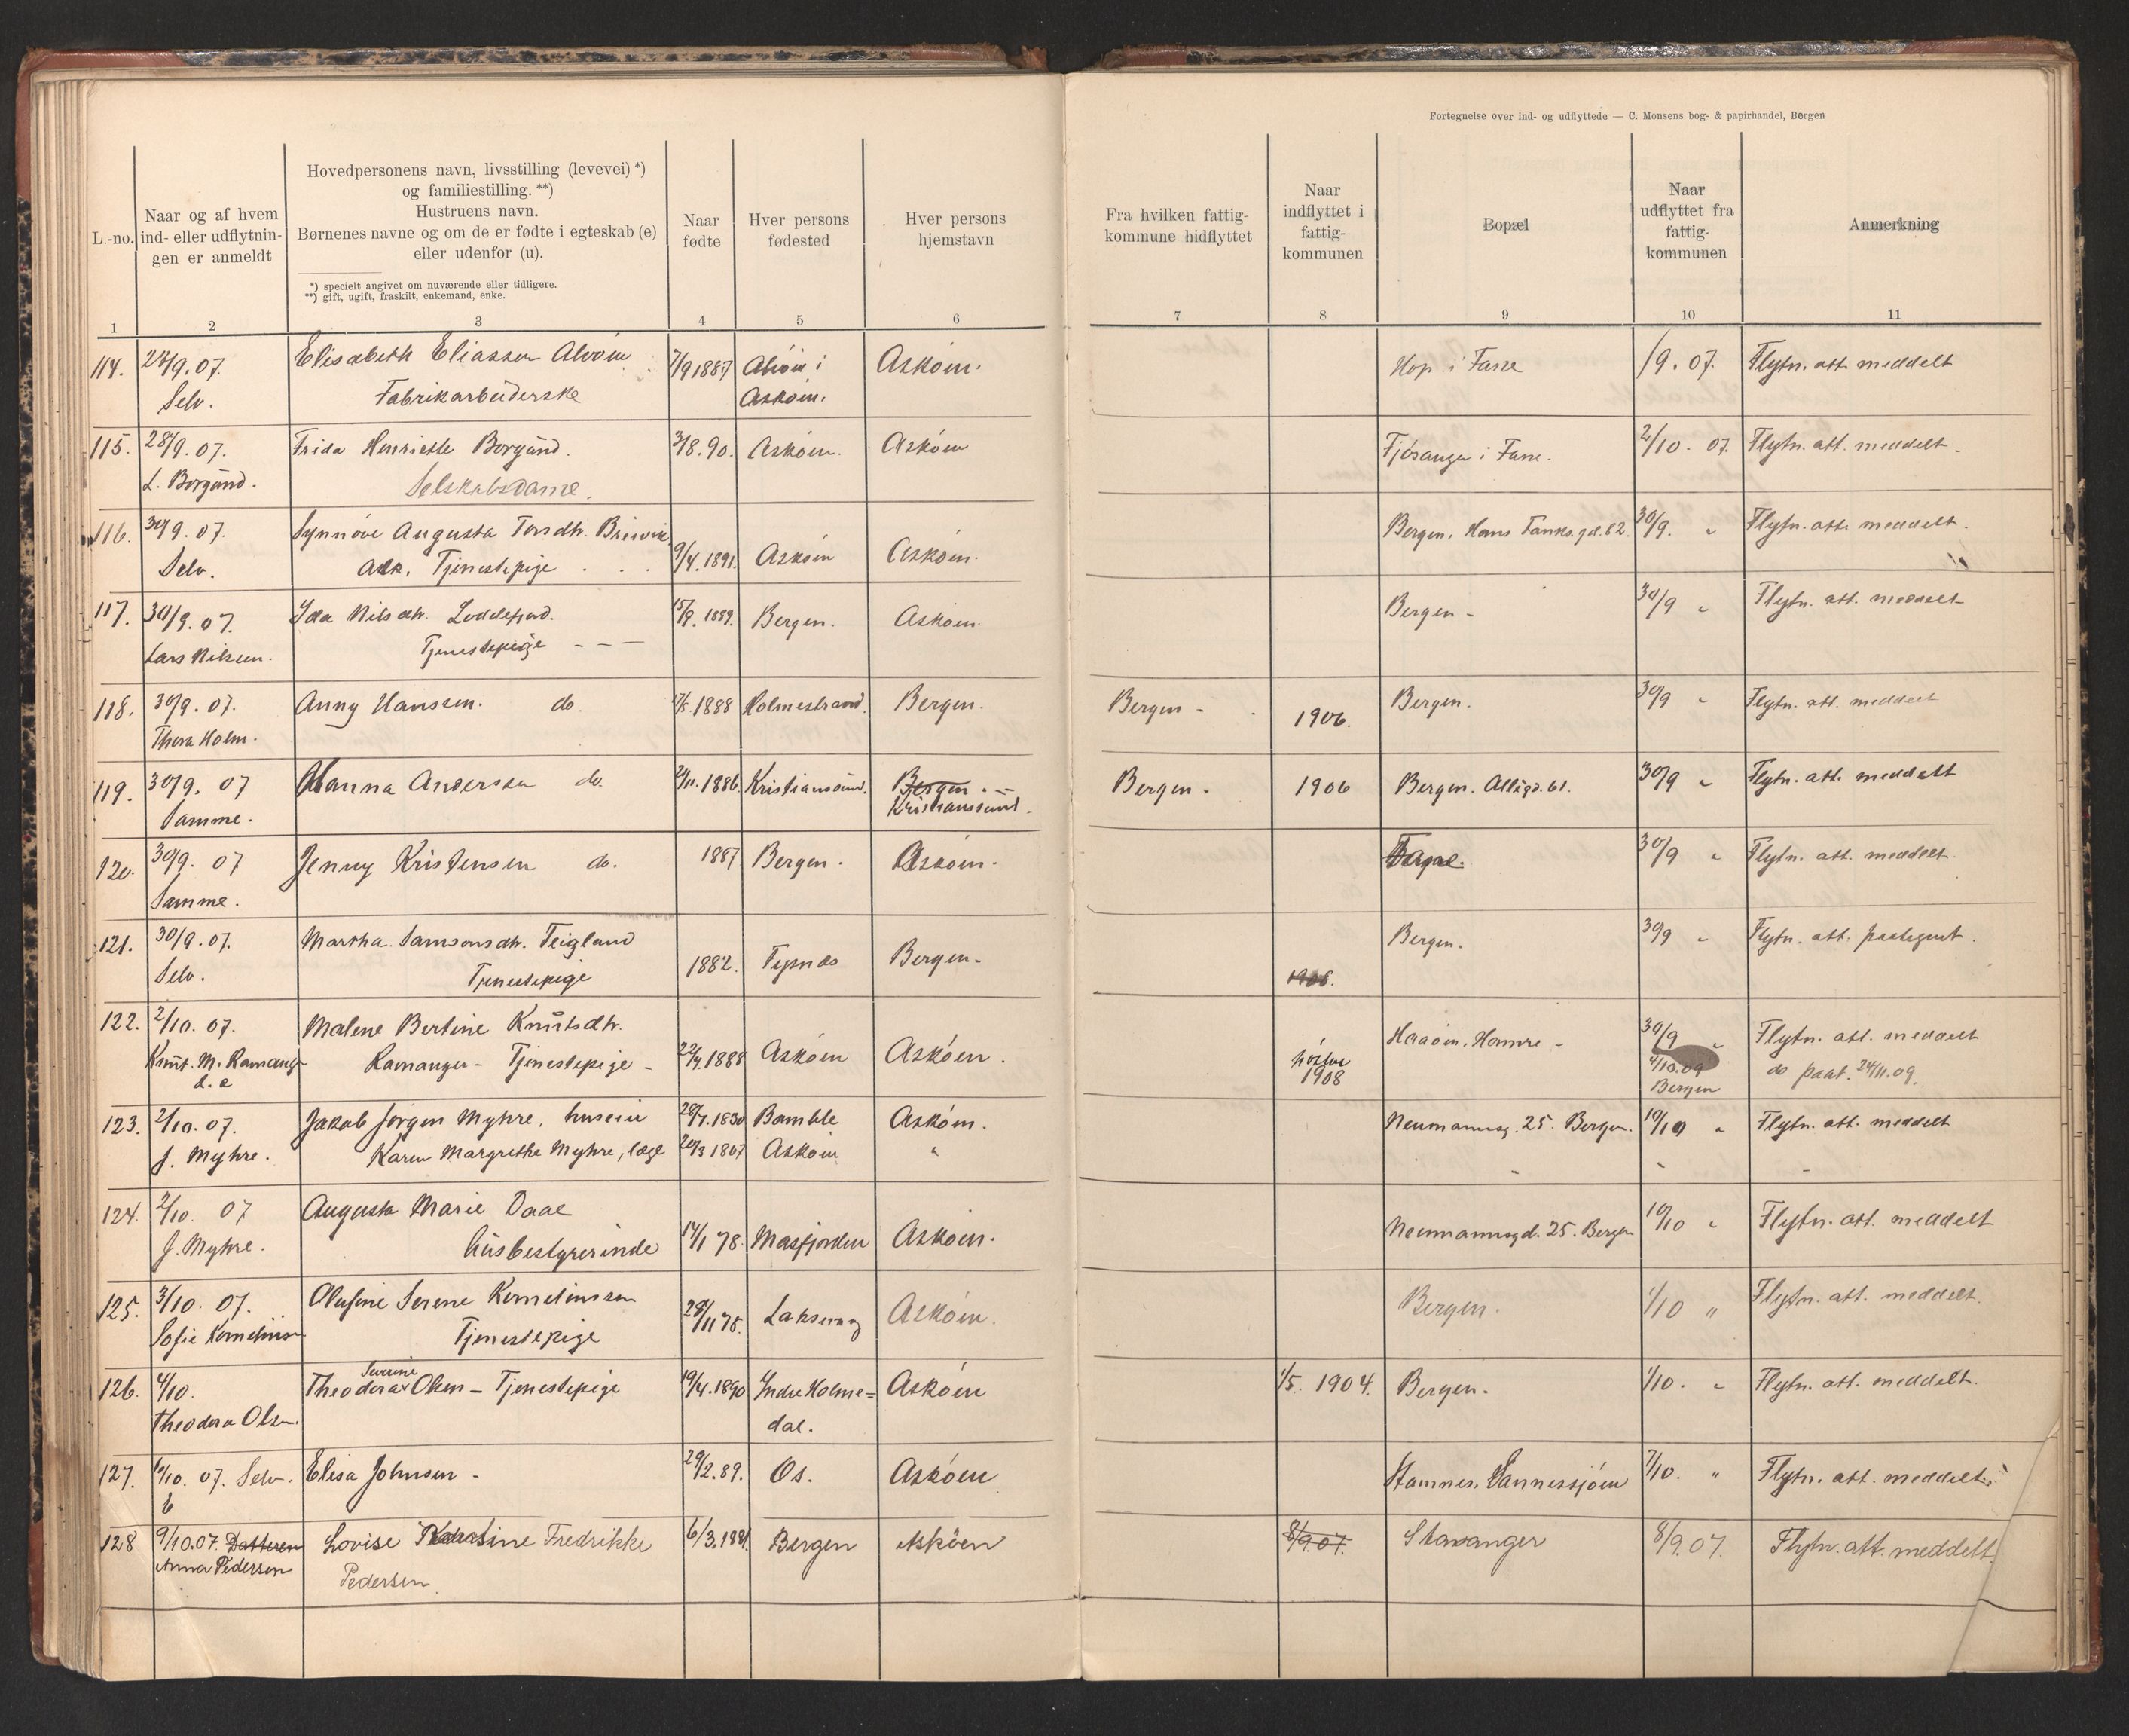 Fortegnelse over ind- og udflyttede — C. Monsens bog- & papirhandel, Bergen
L.-no.
Naar og af hvem
ind- eller udflytnin-
gen er anmeldt
Hovedpersonens navn, livsstilling (levevei) *)
og familiestilling. **)
Hustruens navn.
Børnenes navne og om de er fødte i egteskab (e)
eller udenfor (u).
*) specielt angivet om nuværende eller tidligere.
**) gift, ugift, fraskilt, enkemand, enke.
Naar
fødte
Hver persons
fødested
Hver persons
hjemstavn
Fra hvilken fattig-
kommune hidflyttet
Naar
indflyttet i
fattig-
kommunen
Bopæl
Naar
udflyttet fra
fattig-
kommunen
Anmerkning
1 2 3 4 5 6 7 8 9 10 11
114. /9.07. Elisabeth Eliassen Alvøen 7/9 1887 Alvøen i Askøen. Hop i Fane /9.07. Flytn. att. meddelt
Selv. Fabrikarbeiderske Askøen.
115. 28/9.07. Frida Henriette Borgund. 3/8.90. Askøen. Askøen Fjøsanger i Fane. 2/10.07. Flytn. att. meddelt.
L. Borgund. Selskabsdame.
116. 30/9.07. Synnøve Augusta Torsdtr. Bergen, Hans Tanksgd. 82. 30/9. " Flytn. att. meddelt.
Selv. Ask, Tjenestepige 9/4.1891. Askøen Askøen.
117. 30/9.07. Ida Nilsdtr. Loddefjord. 15/9.1889. Bergen. Askøen. Bergen - 30/9 " Flytn. att. meddelt
Lars Nilsen. Tjenestepige - - -
118. 30/9.07. Anny Hanssen. do. 1888 Holmestrand. Bergen. Bergen - 1906. Bergen. 30/9 " Flytn. att. meddelt
Thora Holm.
119. 30/9.07 Hanna Andersen do. 1886 Kristiansund. Bergen. - Bergen - 1906 Bergen. Allégd. 61. 30/9 " Flytn. att. meddelt
Samme. Kristianssund.
120. 30/9.07 Jenny Kristensen do. 1887 Bergen. Askøen. 30/9 " Flytn. att. meddelt
Samme.
121. 30/9.07. Martha Samsonsdtr. Teigland Bergen. 30/9 " Flytn. att. paategnet.
Selv. Tjenestepige 1882. Tysnæs Bergen. 1906.
122. 2/10.07. Malene Bertine Knutsdtr. Hamre - 30/9 " Flytn. att. meddelt
Knut. M. Ramanger Ramanger - Tjenestepige - 1888 Askøen Askøen. høsten 1908 4/10.09 Bergen do paat. 24/11.09.
123. 2/10.07. Jakob Jørgen Myhre, huseier 28/7.1830 Bamble Askøen. Neumannsg. 25. Bergen. 10/10 " Flytn. att. meddelt
J. Myhre. Karen Margrethe Myhre, læge 20/3 1867 Askøen " " " "
124. 2/10.07 Augusta Marie Daae
J. Myhre. Husbestyrerinde 14/1 78. Masfjorden Askøen. Neumannsgd. 25. Bergen 10/10 " Flytn. att. meddelt
125. 3/10.07. Olufine Serene Kornelinssen 28/11 78. Laksevaag Askøen. Bergen. 1/10 " Flytn. att. meddelt.
Sofie Tjenestepige
126. 4/10. Theodora Severine Olsen - Tjenestepige 19/4.1890 Indre Holme= Askøen 1/5. 1904. Bergen. 1/10. " Flytn. att. meddelt.
Theodora Olsen. dal.
127. /10.07. Selv. Elisa Johnsen - 29/2.89. Os. Askøen Stamnes. 7/10. " Flytn. att. meddelt.
128 9/10.07. Datteren Lovise Fredrikke 6/3. Bergen Askøen 8/9.07. Stavanger 8/9.07. Flytn. att. meddelt.
Anna Pedersen Pedersen